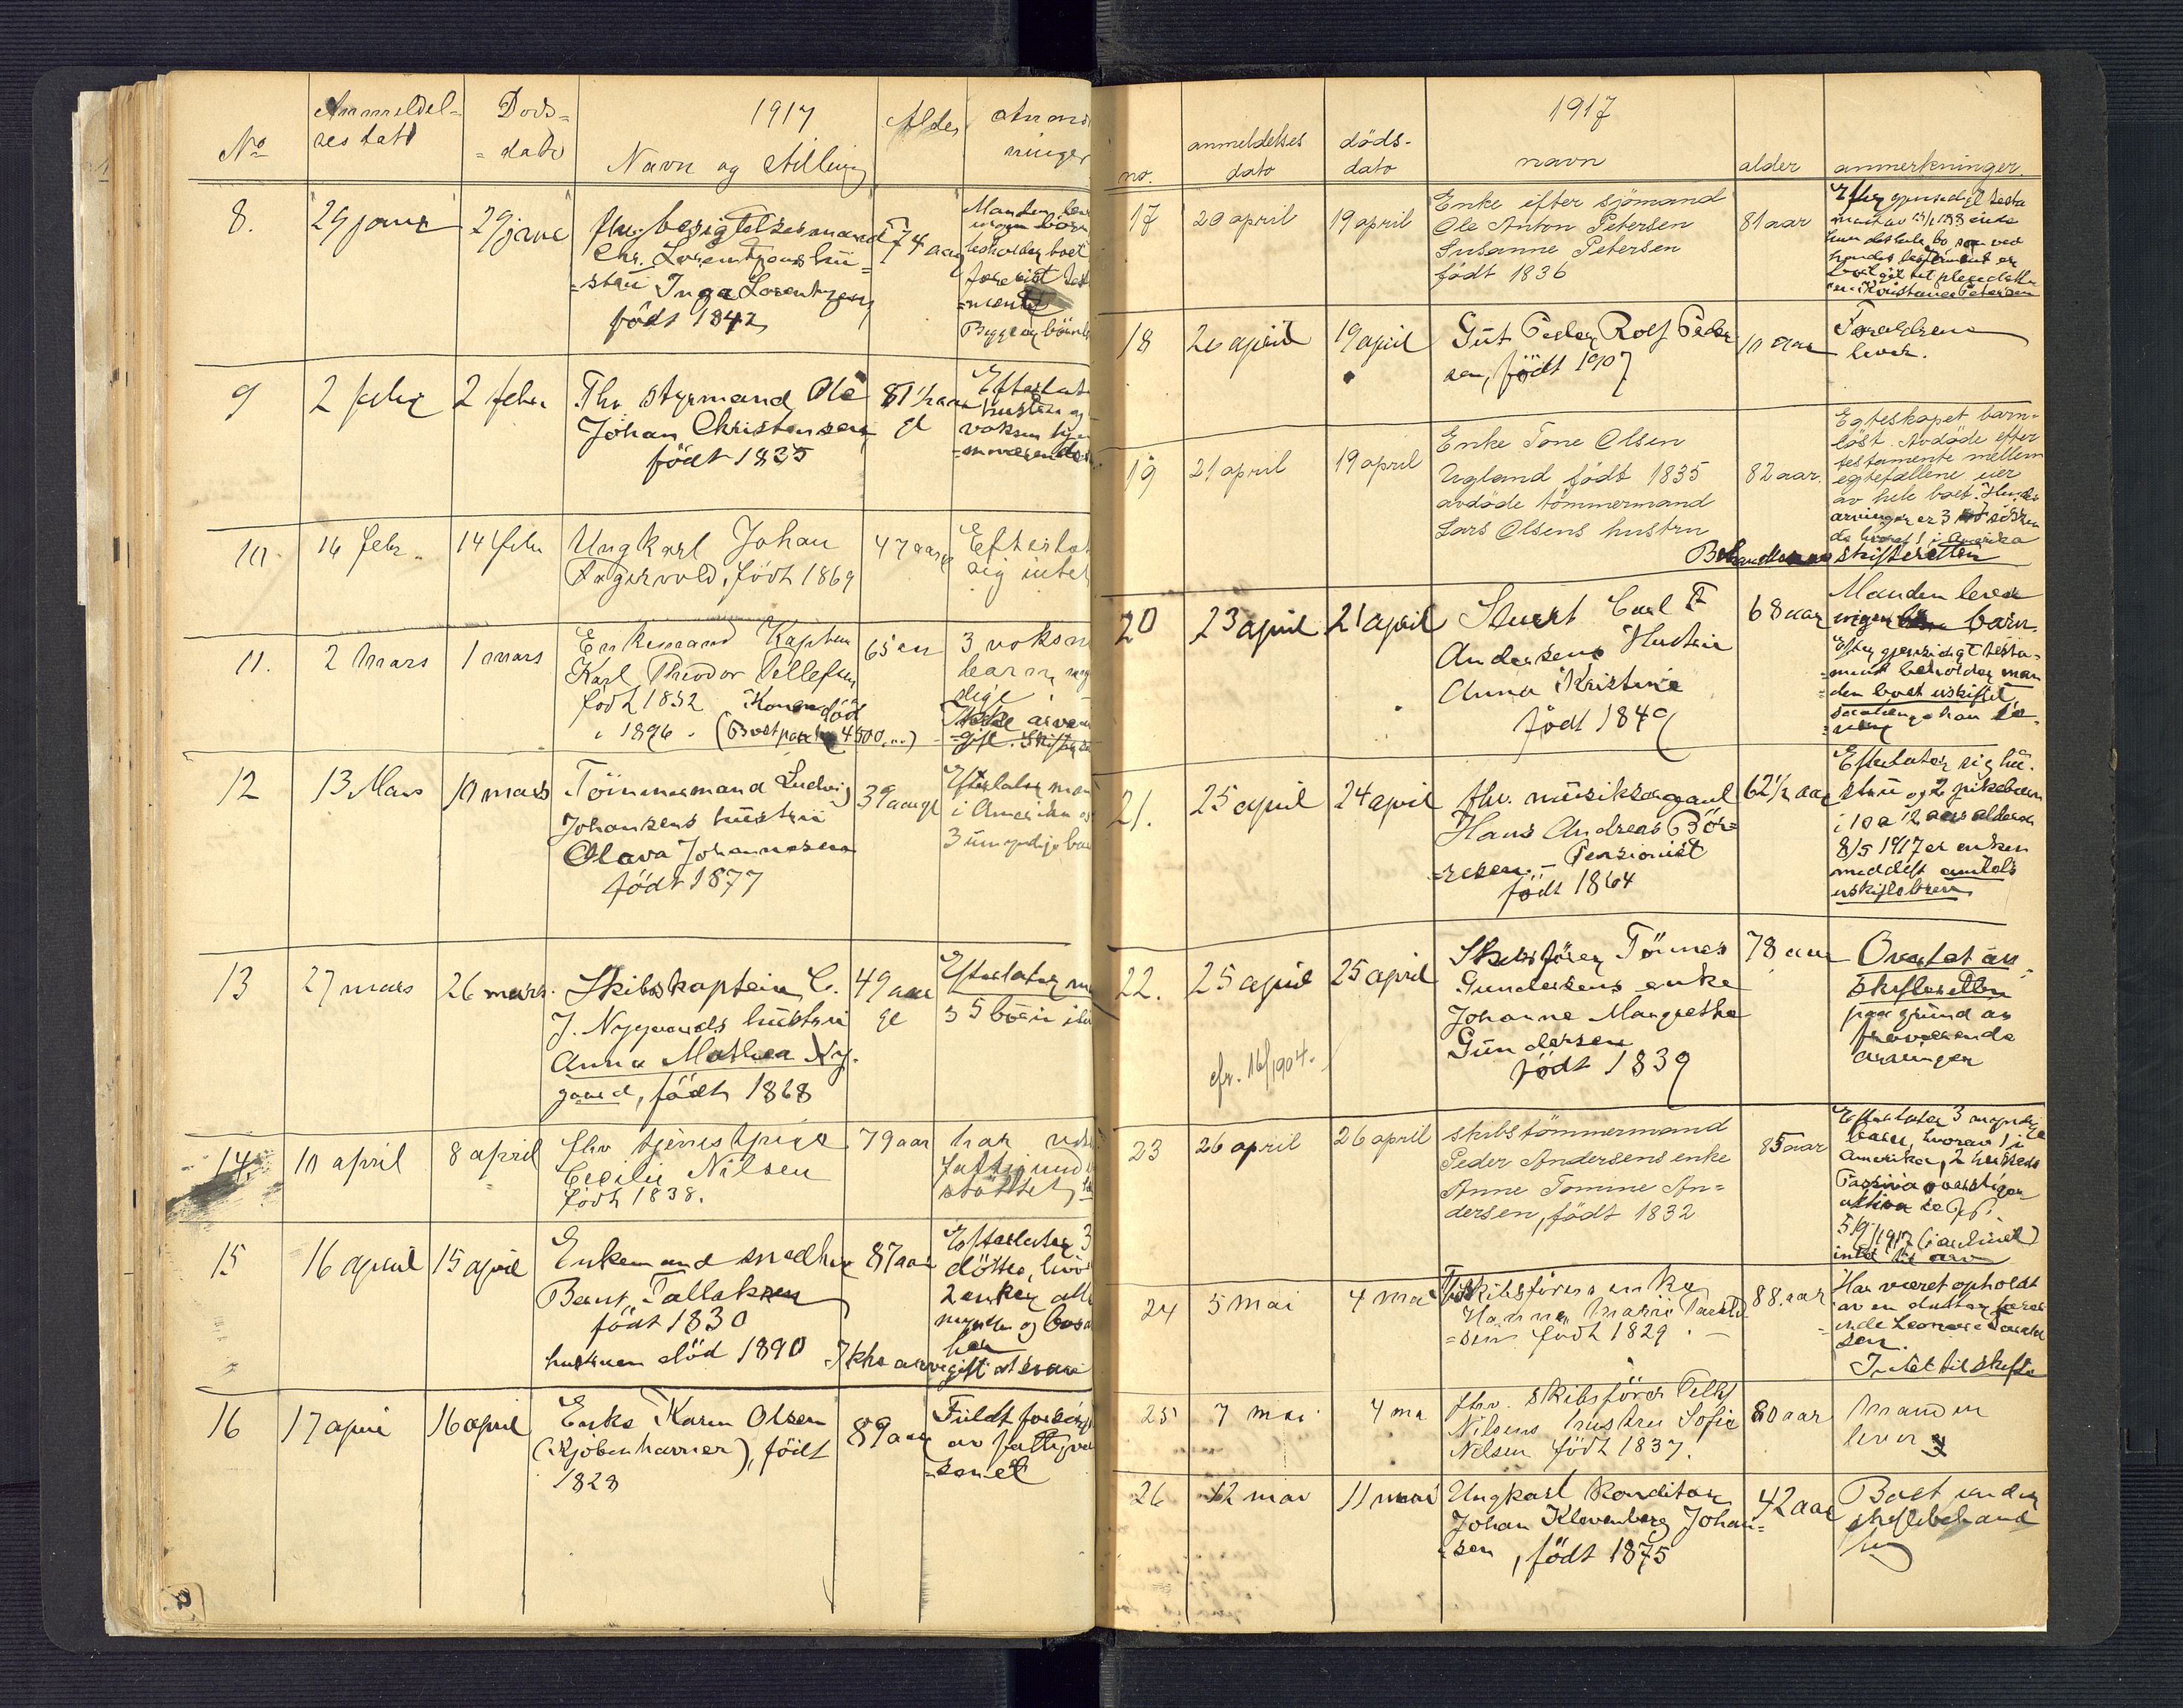 1917
No
Anmeldel-
ses dato
Døds-
= dato
Navn og Stilling
Alder
Anmærk-
ninger
8.
29 januar
29 januar
fhv. besigtelsesmand
Chr. Lorentzens hu-
=stru Inga Lorentzen
født 1842
74 aar
Manden lever
ingen børn
beholder boet
9
2 febr
2 febr
Fhv. styrmand Ole
Johan Christensen
født 1835
81 1/2 aar
gl
Efterlat
hustru og
voksen
10
16 febr.
14 febr
Ungkarl Johan
Lagervold, født 1869
47 aar
Efterlot
sig intet
11.
2 mars
1 mars
Enkemand Kaptein
Karl Theodor Tellefsen
født 1852 Konen död
i 1896. (Boet 4500...)
65 aar
3 voksne
barn, myn
dige
12
13 Mars
10 mars
Tömmermand Ludvig
Johansens hustru
Olava Johannesen
født 1877
39 aar gl
Efterlater man
i Amerika og
3 umyndige barn
13
27 mars
26 mars.
Skibskaptein C.
J. Nygaards hustru
Anna Mathea Ny-
gaard, født 1868
49 aar
gl
Efterlater
5 börn
14.
10 april
8 april
fhv tjenestpige
Cecilie Nilsen
født 1838.
79 aar
har
fattigund
støttet
15
16 april
15 april
Enkemand snedker
Bent Tallaksen
født 1830
hustruen död 1890
87 aar
Efterlater 3
döttre, hvor
2 enker alle
myndige og bosat
her
Ikke arvegift at svare
16
17 april
16 april
Enke Karen Olsen
(Kjøbenhavner), født
1828
89 aar
Fuldt forsørget
av fattigvæ
=senet
1917
no.
anmeldelses
dato
döds-
dato
navn
alder
anmerkninger.
17
20 april
19 april
Enke efter sjömand
Ole Anton Petersen
Susanne Petersen
født 1836
81 aar
Efter gjensidigt testa
ment av
18
20 april
19 april
Gut Peder Rolf Peder
sen, født 1907
10 aar
Forældrene
lever.
19
21 april
19 april
Enke Tone Olsen
Ugland født 1835
avdöde tömmermand
Lars Olsens hustru
82 aar.
Egteskapet barn-
løst. Avdöde efter
testamente mellem
egtefællene eier
av hele boet. Hendes
arvinger er 3 søsken
de hvorav 1 i Amerika
Behandles av skifteretten
20
23 april
21 april
Stuert Carl F
Andersens Hustru
Anna Kristine
født 1849
68 aar
Manden lever
ingen barn.
Efter gjensidigt testa-
ment beholder man
=den boet uskiftet
saalenge han le-
=ver
21.
25 april
24 april
fhv. musiksergeant
Hans Andreas Bör-
=resen. – Pensionist
født 1864
62 1/2 aar
Efterlater sig hu-
stru og 2 pikebarn
i 10 a 12 aars alderen
8/5 1917 er enken
meddelt
uskiftebrev
22.
25 april
25 april
Skibsfører Tönnes
Gundersens enke
Johanne Margrethe
Gundersen
født 1839
cfr. 16/1904.
78 aar
Overlatt an
skifteretten
paa grund av
fraværende
arvinger
23
26 april
26 april
skibstömmermand
Peder Andersens enke
Anne Tomine An=
dersen, født 1832
85 aar
Efterlater 3 myndige
barn, hvorav 1 i
Amerika, 2 her
Passiva overstiger
aktiva
5/9 1917
intet til arv
24
5 mai
4 mai
Skibsførers enke
Hanna Marie
=sen født 1829. –
88. aar
Har været opholdt
av en datter
Intet til skifte
25
7 mai
4 mai
fhv. skibsfører
Nilsens hustru Sofie
Nilsen født 1837.
80 aar
Manden
lever
26
12 mai
11 mai
Ungkarl Konditor
Johan Klevenberg Johan-
=sen, født 1875
42 aar
Boet under
skiftebehand
ling